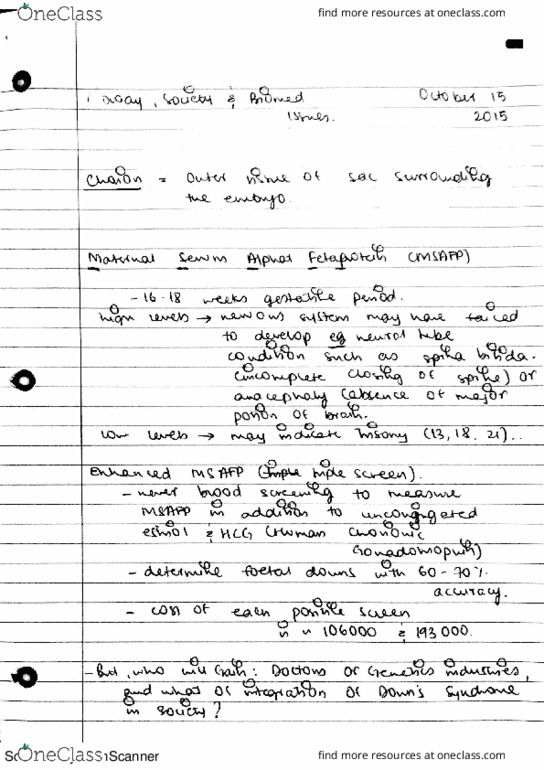 OneClass find more resources at oneclass.com
Society & Biomed October 15
Issues. 2015
Chorion = outer tissue of sac surrounding
the embryo.
Maternal Serum Alpha Fetaprotein (MSAFP)
- 16-18 weeks gestative period.
high levels → nervous system may have failed
to develop eg neural tube
condition such as spina bifida.
(incomplete closing of spine) or
anacephaly (absence of major
portion of brain.
low levels → may indicate trisomy (13, 18, 21)..
Enhanced MSAFP (triple screen).
- newer blood screening to measure
MSAFP in addition to uncongigated
estriol & HCG (Human Chorionic
Gonadotropin)
- determine foetal downs with 60-70%
accuracy.
- cost of each positive screen
is 106000 & 193000.
- But, who will gain: Doctors or Genetics industries,
and what of integration of Down's syndrome
in society?
OneClass Scanner find more resources at oneclass.com